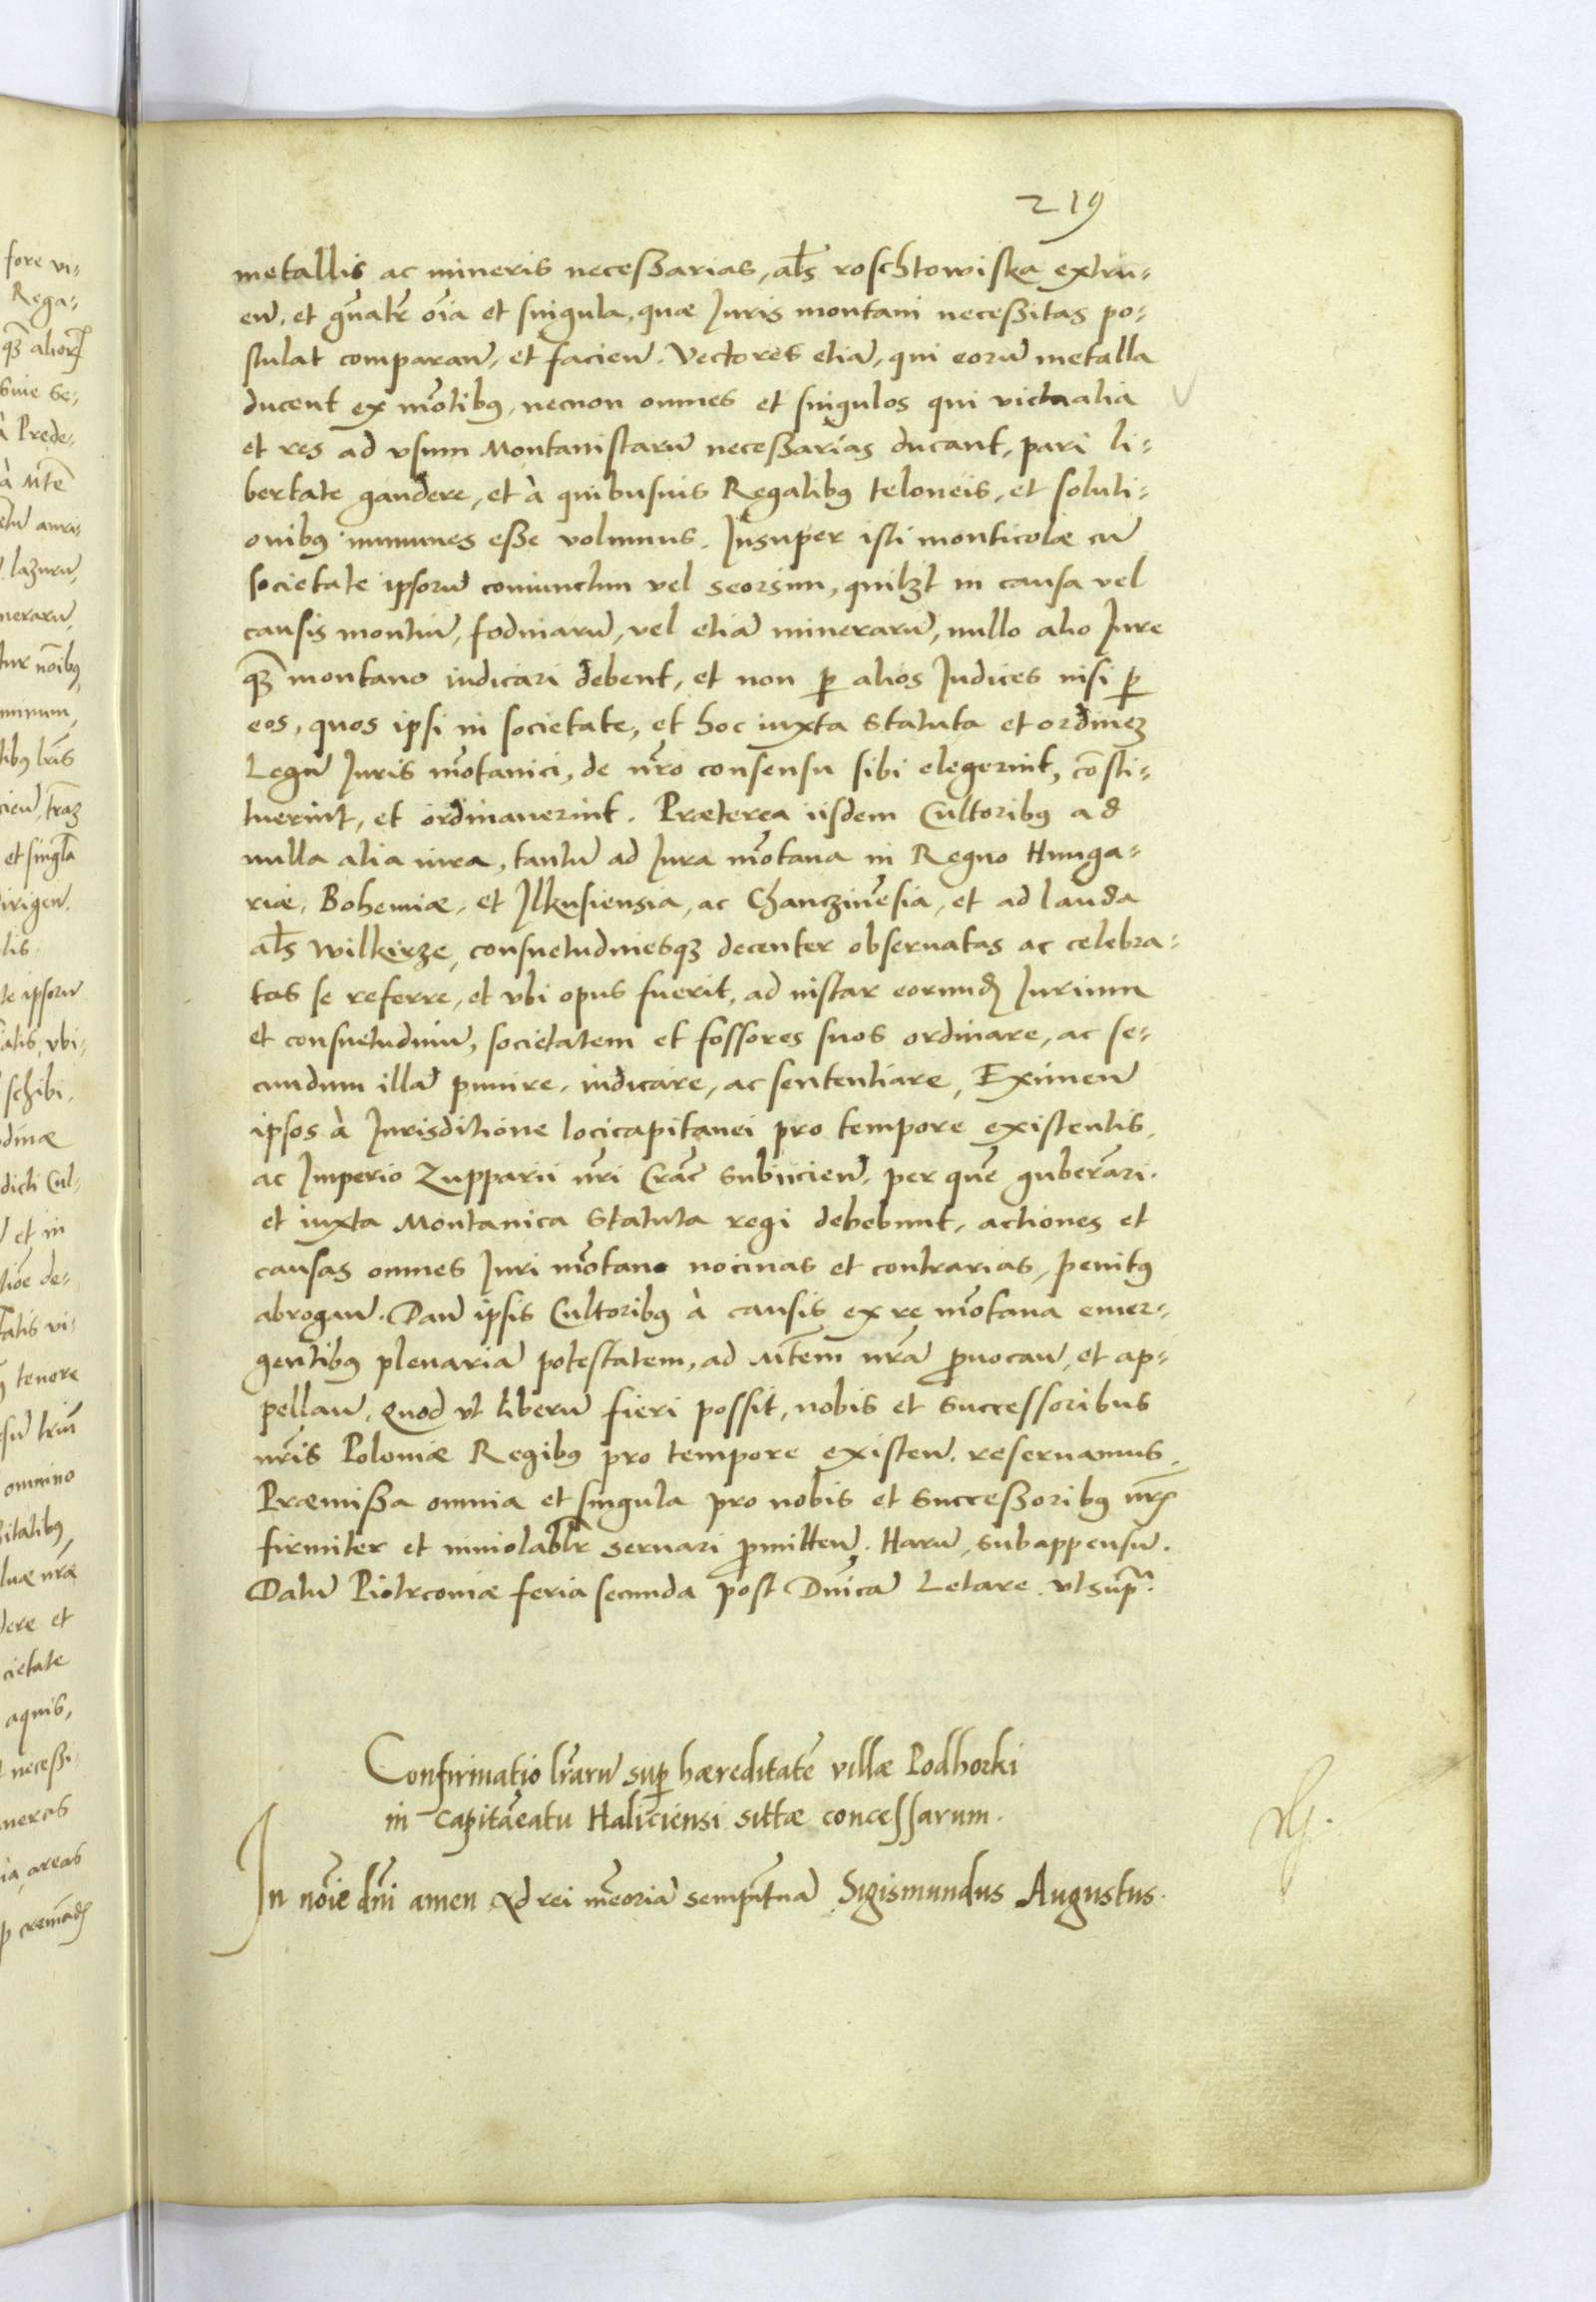 219
metallis ac mineris necessarias, al̄s roschtowiska extru-
en̄, et gn̄atr̄ oīa et singula, quæ Iuris montani necessitas po-
stulat comparan̄, et facien̄. Vectores etiā, qui eorū metalla
ducent ex mōtibꝰ, necnon omnes et singulos qui victualia
et res ad vsum Montanistarū necessarias ducant, pari li-
bertate gaudere, et à quibusuis Regalibꝰ teloneis, et soluti-
onibꝰ immunes esse volumus. Insuper isti monticolæ cū
societate ipsorū coniunctim vel seorsim, quilꝫt in causa vel
causis montiū, fodinarū, vel etiā minerarū, nullo alio Iure
qꝫ̄ montano iudicari debent, et non ꝑ alios Iudices nisi ꝑ
eos, quos ipsi in societate, et hoc iuxta statuta et ordineꝫ
Legū Iuris mōtanici, de nr̄o consensu sibi elegerint, cōsti-
tuerint, et ordinauerint. Præterea iisdem Cultoribꝰ ad
nulla alia iura, tantū ad Iura mōtana in Regno Hunga-
riæ, Bohemiæ, et Ilkusiensia, ac Chanczinēsia, et ad lauda
al̄s wilkirze, consuetudinesqꝫ decenter obseruatas ac celebra-
tas se referre, et vbi opus fuerit, ad instar eorundꝫ Iurium
et consuetudinū, societatem et fossores suos ordinare, ac se-
cundum illā punire, iudicare, ac sententiare, Eximen̄
ipsos à Iurisditione locicapitanei pro tempore existentis,
ac Imperio Zupparii nr̄i Crac̄ subiicien̄, per quē gubernāri.
et iuxta Montanica statuta regi debebunt, actiones et
causas omnes Iuri mōtano nociuas et contrarias, penitꝰ
abrogan̄. Dan̄ ipsis Cultoribꝰ à causis ex re mōtana emer-
gentibꝰ plenariā potestatem, ad Mt̄em nrā ꝓuocan̄, et ap-
pellan̄, Quod vt liberū fieri possit, nobis et successoribus
nr̄is Poloniæ Regibꝰ pro tempore existen̄. reseruamus,
Præmissa omnia et singula pro nobis et successoribꝰ nr̄is
firmiter et inuiolablr̄ seruari ꝓmitten̄. Harū, subappensū.
Datū Piotrcouiæ feria secunda post Dn̄icā Letare. vt supª.
Confirmatio lr̄arū suꝑ hæreditatē villæ Podhorki
in capitāeatu Haliciensi sittæ concessarum.
In nōie dn̄i amen Ad rei mēoriā sempit̄nā Sigismundus Augustus.